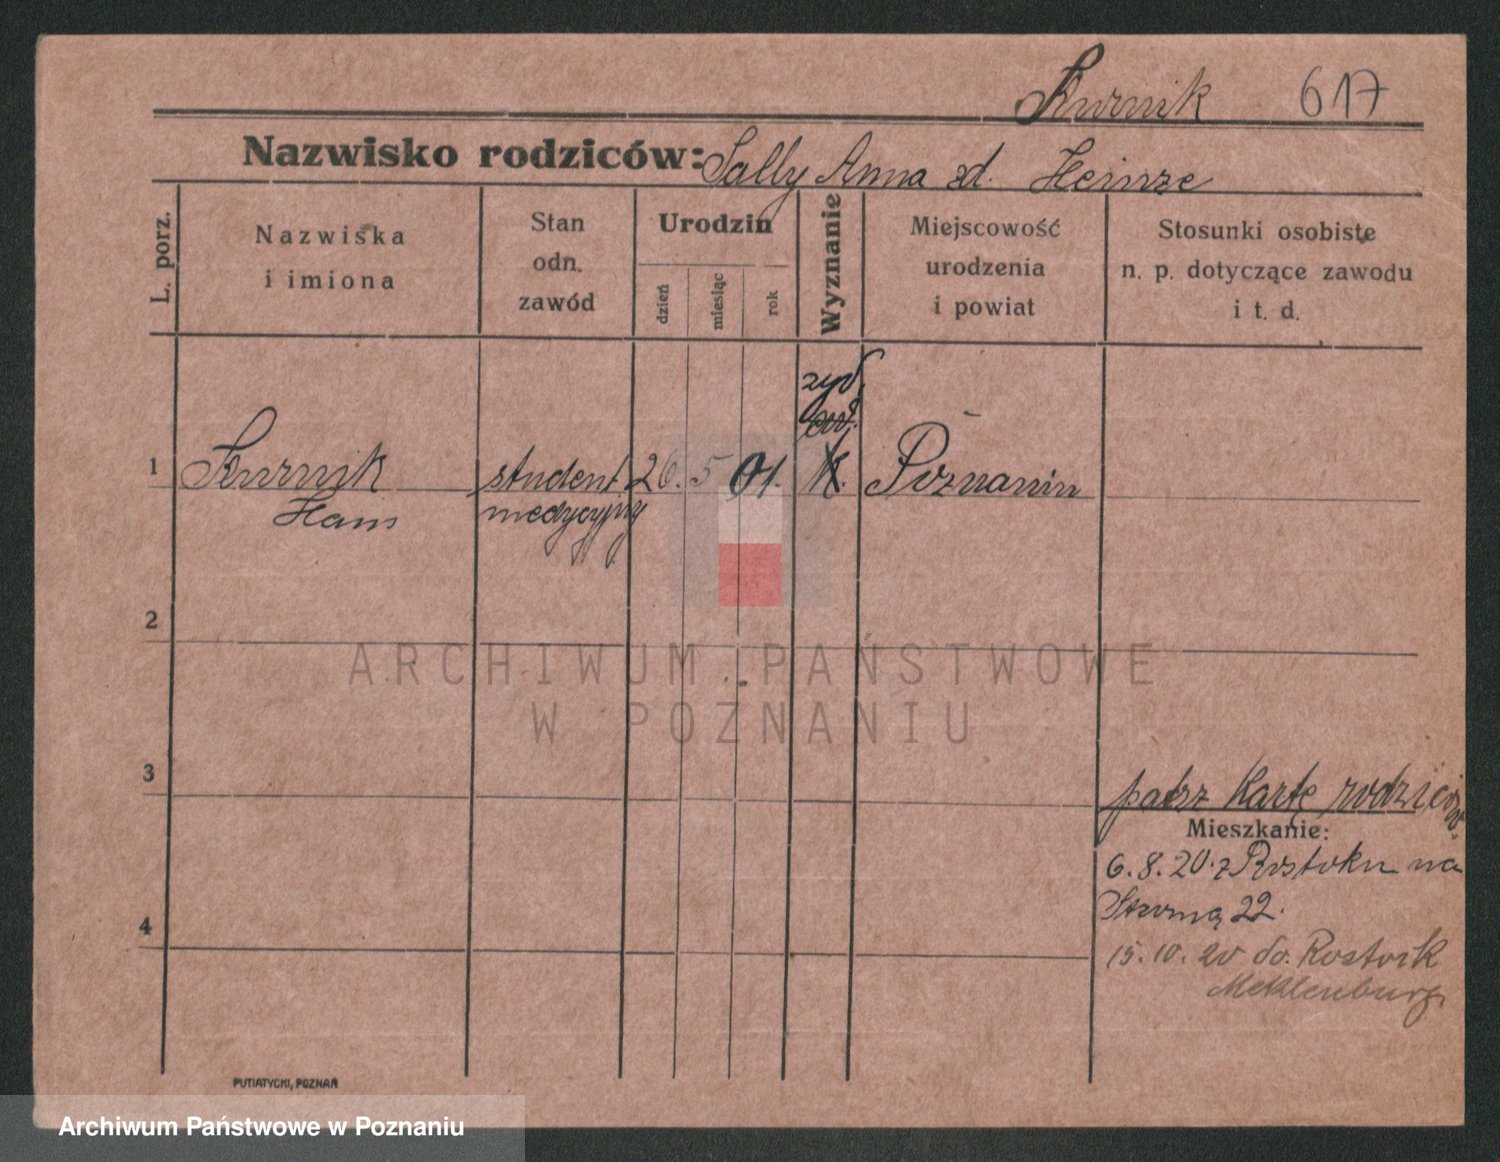 Kurnik 617
Nazwisko rodziców: Sally Anna zd. Heinze
L. porz.
Nazwiska
i imiona
Stan
odn.
zawód
Urodzin
dzień
miesiąc
rok
Wyznanie
Miejscowość
urodzenia
i powiat
Stosunki osobiste
n. p. dotyczące zawodu
i t. d.
żyd.
1 Kurnik student 26. 5 01. K. Poznanin
Hans medycyny
2
ARCHIWUM PAŃSTWOWE
W POZNANIU
3
patrz Kartę rodziców
Mieszkanie:
6.8.20. z Rostoku na
22.
4
15.10.20 do. Rostock
Meklenburg.
PUTIATYCKI, POZNAŃ
Archiwum Państwowe w Poznaniu